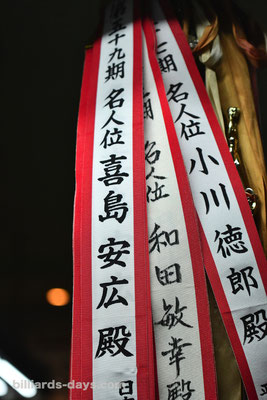 五十九期 名人位 喜島 安広 殿
期 名人位 和田 敏幸 殿
期 名人位 小川 徳郎 殿
billiards-days.com